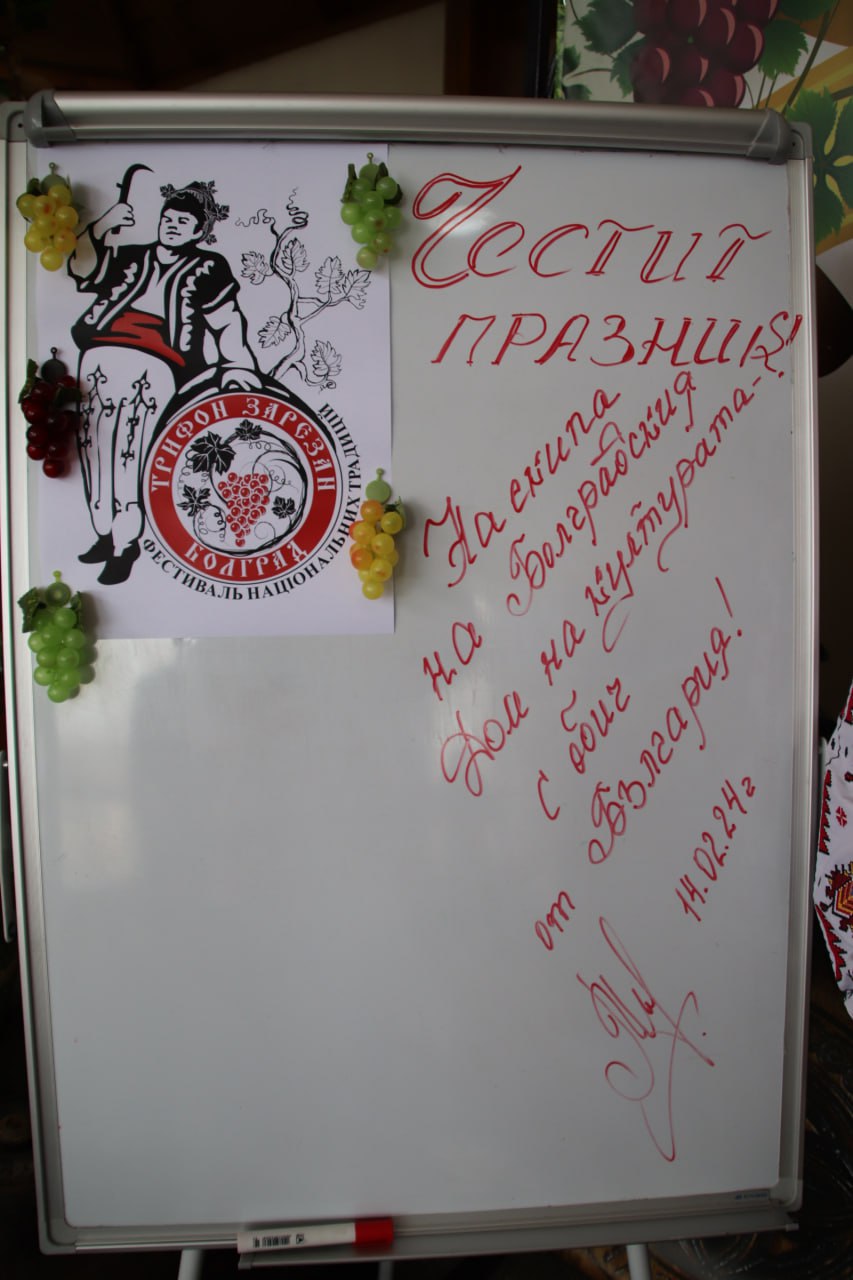 ТРИФОН ЗАРЕЗАН
БОЛГРАД
ФЕСТИВАЛЬ НАЦІОНАЛЬНИХ ТРАДИЦІЙ
Честит
празник!
На екипа
на Болградския
Дом на културата-
с обич
от България!
14.02.24г